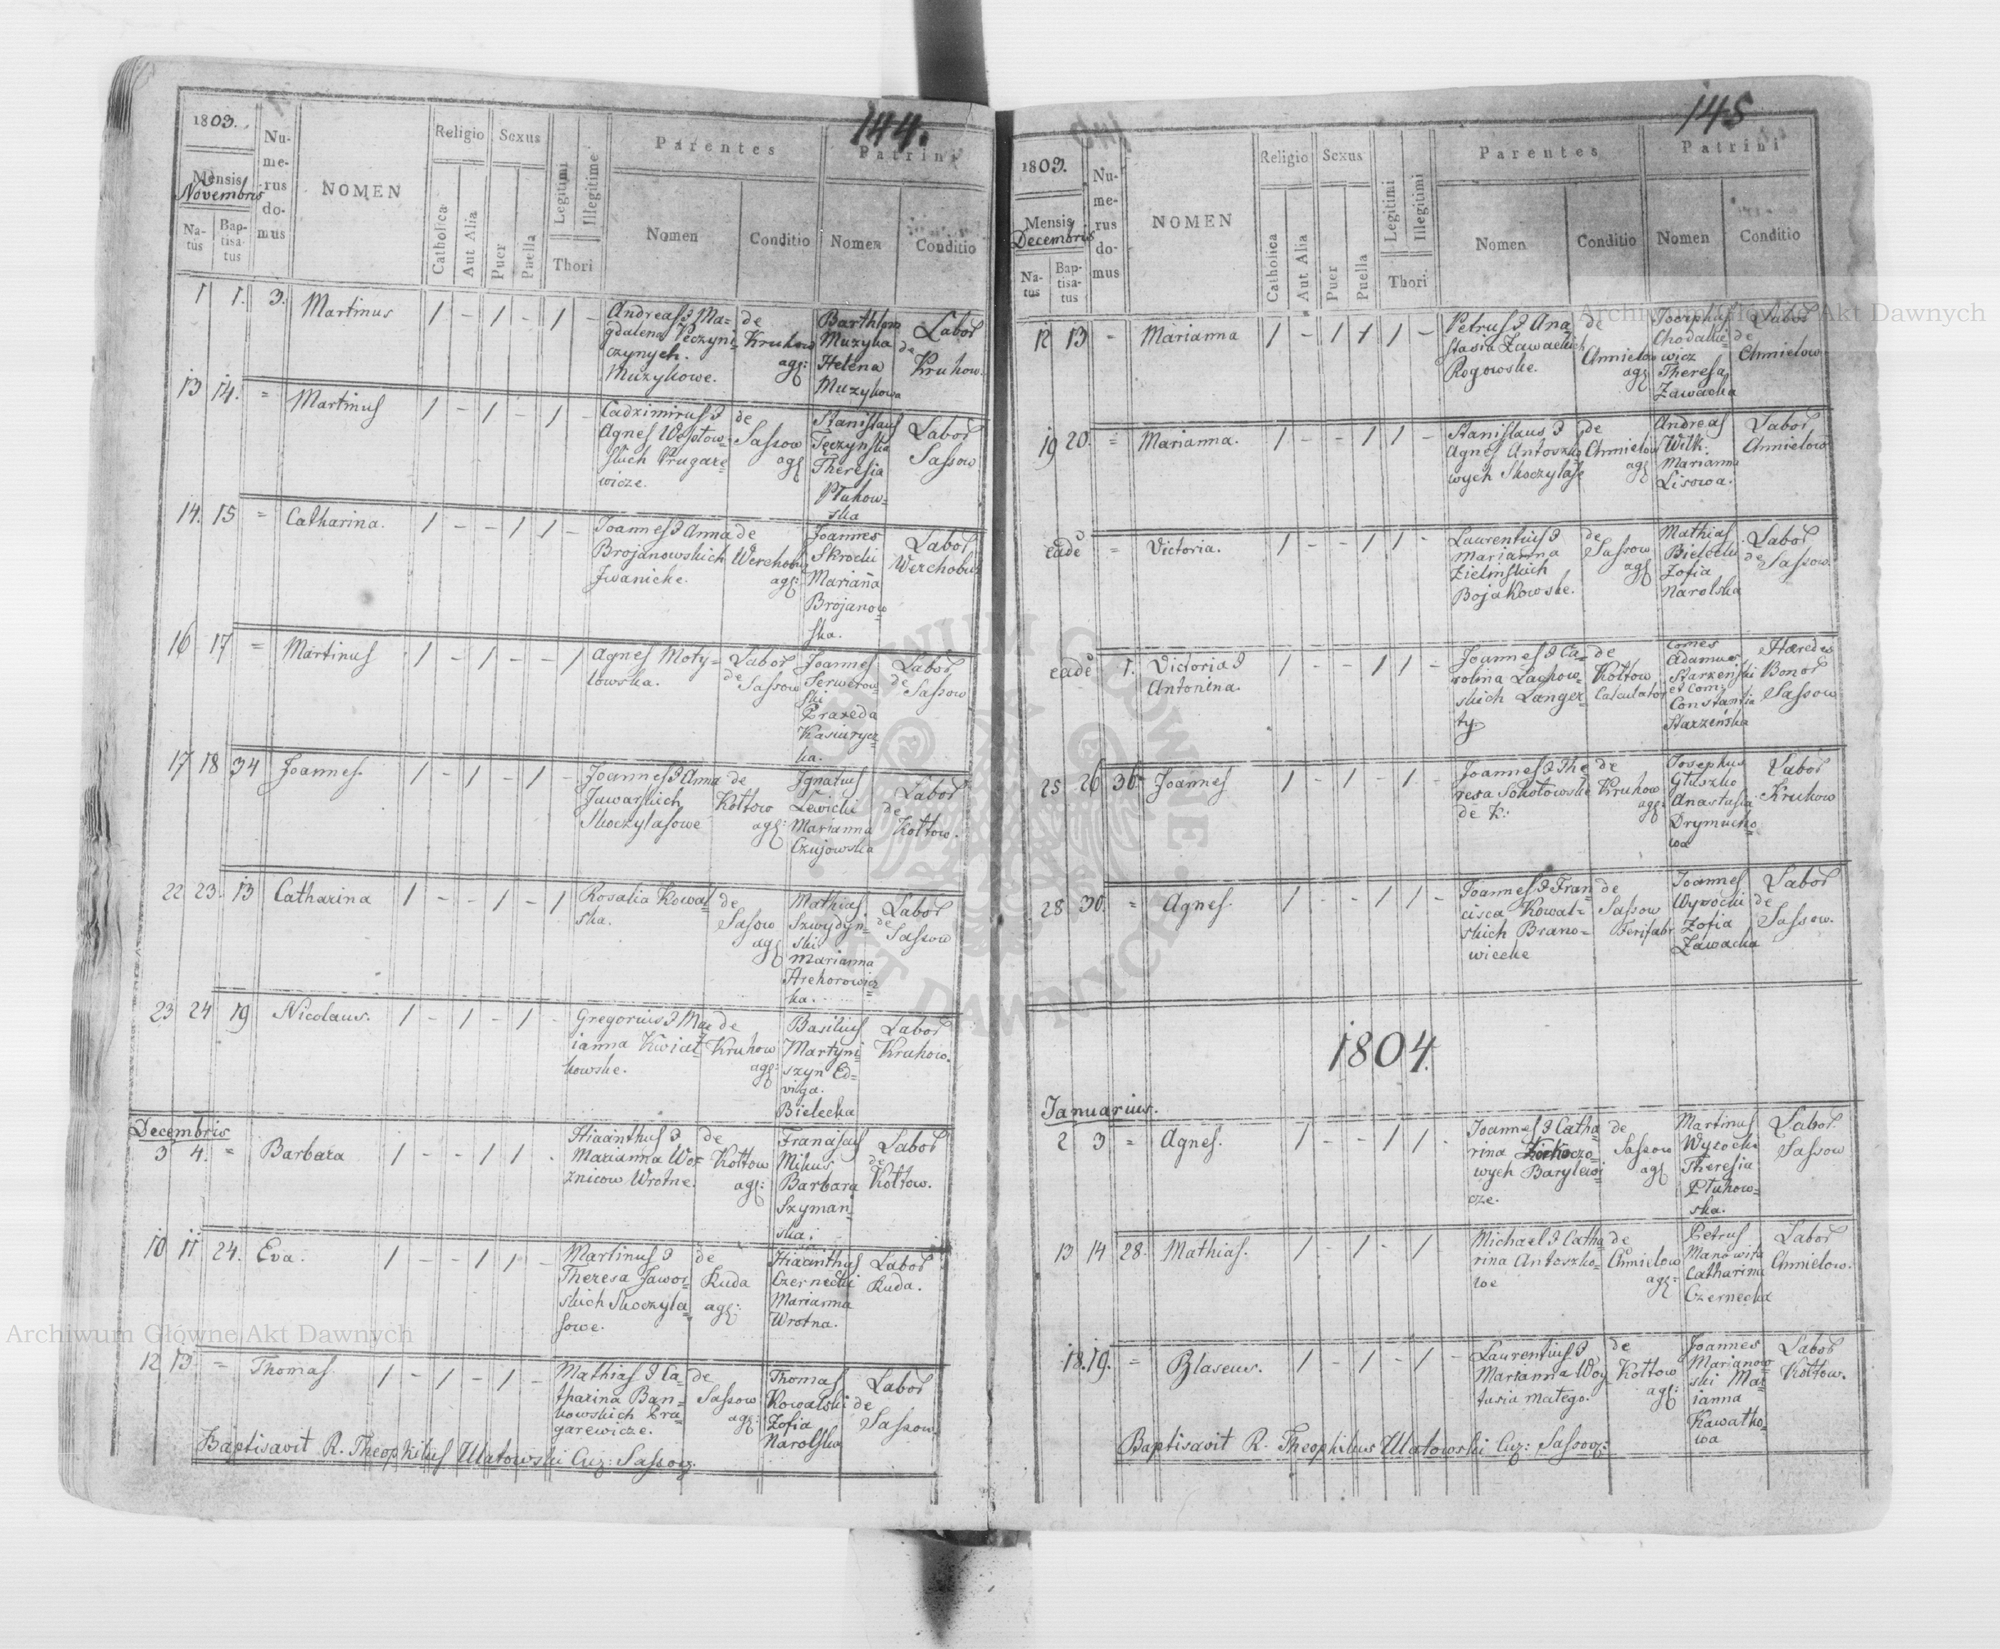 144.
1803.
Mensis
Novembris
Natus
Baptisatus
Numerus domus
NOMEN
Religio
Catholica
Aut Alia
Sexus
Puer
Puella
Legitimi
Illegitime
Thori
Parentes
Nomen
Conditio
Patrini
Nomen
Conditio
1 1. 3. Martinus 1 - 1 - 1 -
Andreas & Ma=
gdalena Peczyni=
czynych.
Muzykowe.
de
Kruhow
agr:
Barthlom
Muzyka
Helena
Muzykowa
Labor
de
Kruhow.
13 14. = Martinus 1 - 1 - 1 -
Cadzimirus &
Agnes
skich Prugare=
wicze.
de
Sassow
agr
Stanislaus
Tęczynska
Theresia
Ptuhow=
ska
Labor
Sassow
14. 15 = Catharina. 1 - - 1 1 -
Joannes & Anna
Brojanowskich
Jwanicke.
de
Werchobuz
agr:
Joannes
Skrocki
Mariana
Brojanow
ska.
Labor
Werchobuz
16 17 = Martinus 1 - 1 - - 1
Agnes Moty=
lowska.
Labor
de Sassow
Joannes
Serwerow=
ski
Praxeda
ka.
Labor
de
Sassow
17 18 34 Joannes. 1 - 1 - 1 -
Joannes & Anna
Jaworskich
Skoczylasowe
de
Kołtow
agr:
Jgnatius
Lewicki
Marianna
Czujowska
Labor
de
Kołtow.
22 23. 13 Catharina 1 - - 1 - 1
Rosalia Kowal=
ska.
de
Sasow
agr
Mathias
Szwydyn=
ski
Marianna
Hrehorowicz
ka.
Labor
de
Sassow
23 24 19 Nicolaus. 1 - 1 - 1 -
Gregorius & Mar
ianna Kwiat=
kowske.
de
Kruhow
agr:
Basilius
Martyni=
szyn Ed=
viga.
Bielecka
Labor
Kruhow.
Decembris
3 4. = Barbara 1 - - 1 1 .
Hiacinthus &
Marianna Wo=
znicow Wrotne.
de
Kołtow
agr:
Franciscus
Mikus
Barbara
Szyman=
ska.
Labor
de
Kołtow.
10 11 24. Eva. 1 - - 1 1 -
Martinus &
Theresa Jawor=
skich Skoczyla=
sowe.
de
Ruda
agr:
Hiacinthus
Czernecki
Marianna
Wrotna.
Labor
Ruda.
12 13. = Thomas. 1 - 1 - 1 -
Mathias & Ca=
tharina Ban=
kowskich Pru=
garewicze.
de
Sassow
agr:
Thomas
Kowalski
Zofia
Narolska
Labor
de
Sassow.
Baptisavit R. Theophilus Ulatowski Cur: Sassov:
145
1803.
Mensis
Decembris
Natus
Baptisatus
Numerus domus
NOMEN
Religio
Catholica
Aut Alia
Sexus
Puer
Puella
Legitimi
Illegitimi
Thori
Parentes
Nomen
Conditio
Patrini
Nomen
Conditio
12 13 = Marianna 1 - 1 1 1 -
Petrus & Ana=
stasia Zawackich
Rogowske.
de
Chmielow
agr
Josephus
Chodakie=
wicz
Theresa
Zawacka
Labor
de
Chmielow
19 20. = Marianna. 1 - - 1 1 -
Stanislaus &
Agnes Antoszko
wych Skoczylase
de
Chmielow
agr
Andreas
Wilk.
Marianna
Lisowa.
Labor
Chmielow
eade = Victoria. 1 - - 1 1 -
Laurentius &
Marianna
Zielinskich
Bojakowske.
de
Sassow
agr
Mathias
Bielecki
Zofia
Narolska
Labor
de
Sassow.
eade 1. Victoria &
Antonina. 1 - - 1 1 -
Joannes & Ca=
rolina Laskow=
skich Langer=
ty.
de
Kołtow
Calculator
Comes
Adamus
Starzenski
et Com:
Constantia
Starzenska
Hæredes
Bonor
Sassow
25 26 36 Joannes 1 - 1 - 1 -
Joannes & The
resa Sokołowske
de K:
de
Kruhow
agr:
Josephus
Głuszko
Anastasia
Drymucho=
wa
Labor
Kruhow
28 30. = Agnes. 1 - - 1 1 -
Joannes & Fran
cisca Kowal=
skich Brano=
wiecke
de
Sassow
Joannes
Wysocki
Zofia
Zawacka
Labor
de
Sassow.
1804.
Januarius.
2 3 = Agnes. 1 - - 1 1 .
Joannes & Catha
rina
wych Barylewi
cze.
de
Sassow
agr
Martinus
Wysocki
Theresia
Ptuhow=
ska.
Labor.
Sassow
13 14 28. Mathias. 1 - 1 - 1
Michael & Catha
rina Antoszko=
we
de
Chmielow
agr:
Petrus
Manowita
Catharina
Czernecka
Labor
Chmielow.
18. 19. = Blaseus. 1 - 1 - 1 -
Laurentius &
Marianna Woy
tusia Małego.
de
Kołtow
agr:
Joannes
Marianow=
ski Mar=
ianna
Kawałko=
wa
Labor
Kołtow.
Baptisavit R. Theophilus Ulatowski Cur: Sassov:
Archiwum Główne Akt Dawnych
Archiwum Główne Akt Dawnych
ARCHIWUM GŁÓWNE AKT DAWNYCH